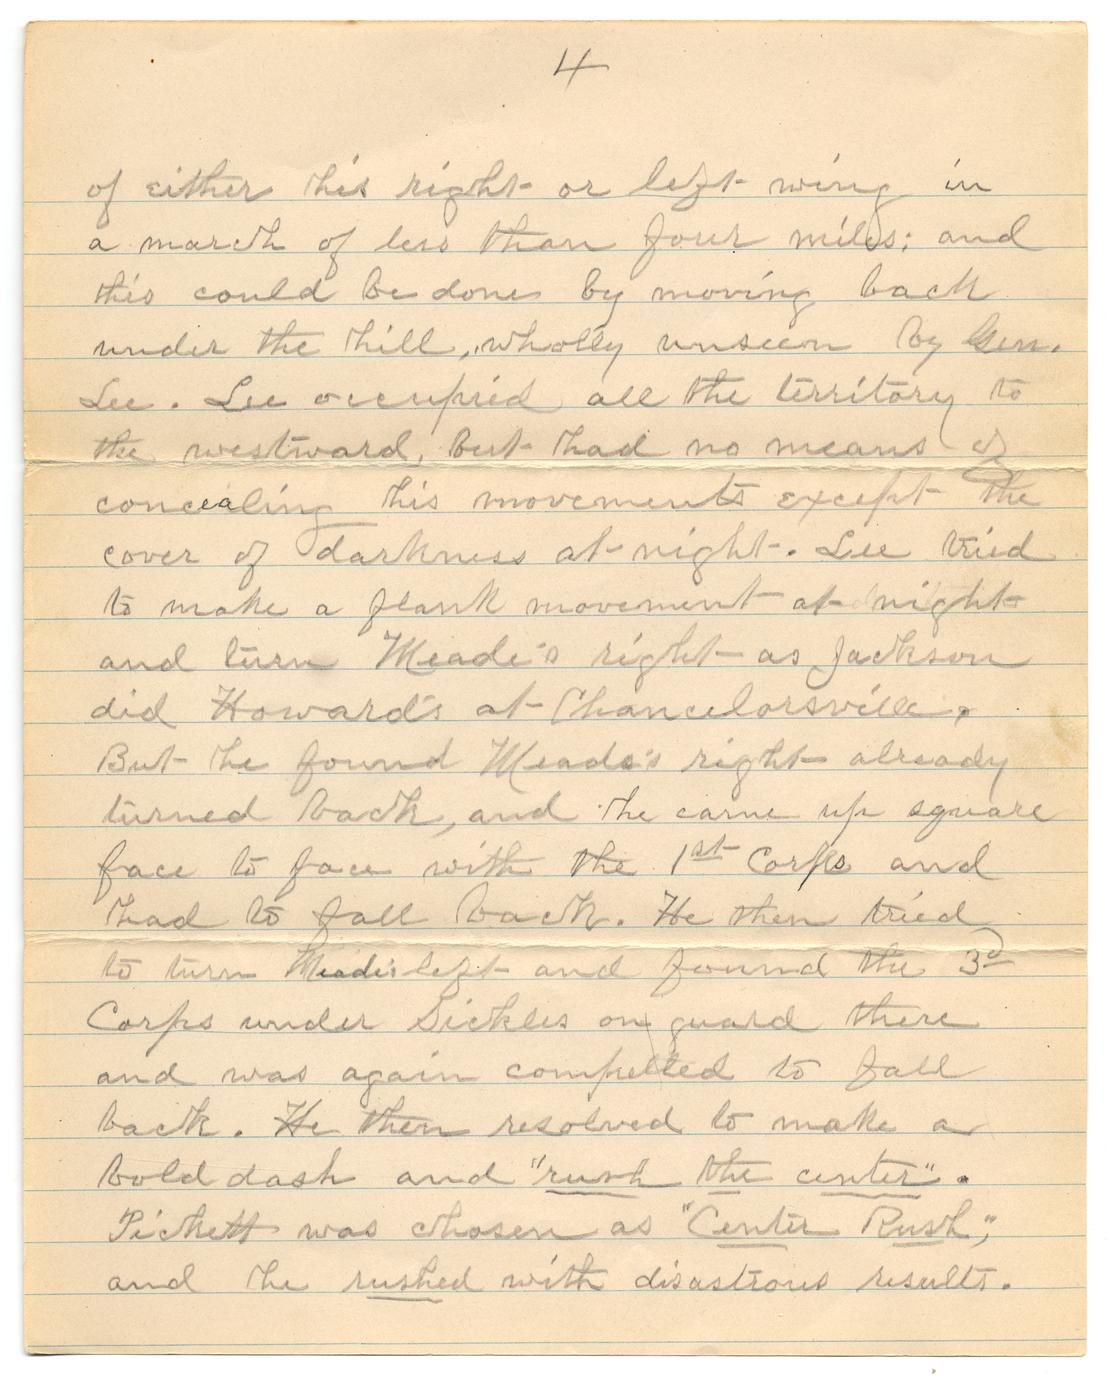 4
of either his right or left wing in
a march of less than four miles; and
this could be done by moving back
under the hill, wholly unseen by Gen.
Lee. Lee occupied all the territory to
the westward, but had no means of
concealing his movements except the
cover of darkness at night. Lee tried
to make a flank movement at night
and turn Meade's right as Jackson
did Howard's at Chancelorsville.
But he found Meade's right already
turned back, and he came up square
face to face with the 1st Corps and
had to fall back. He then tried
to turn Meade's left and found the 3d
Corps under Sickles on guard there
and was again compelled to fall
back. He then resolved to make a
bold dash and "rush the center".
Pickett was chosen as "Center Rush",
and he rushed with disastrous results.